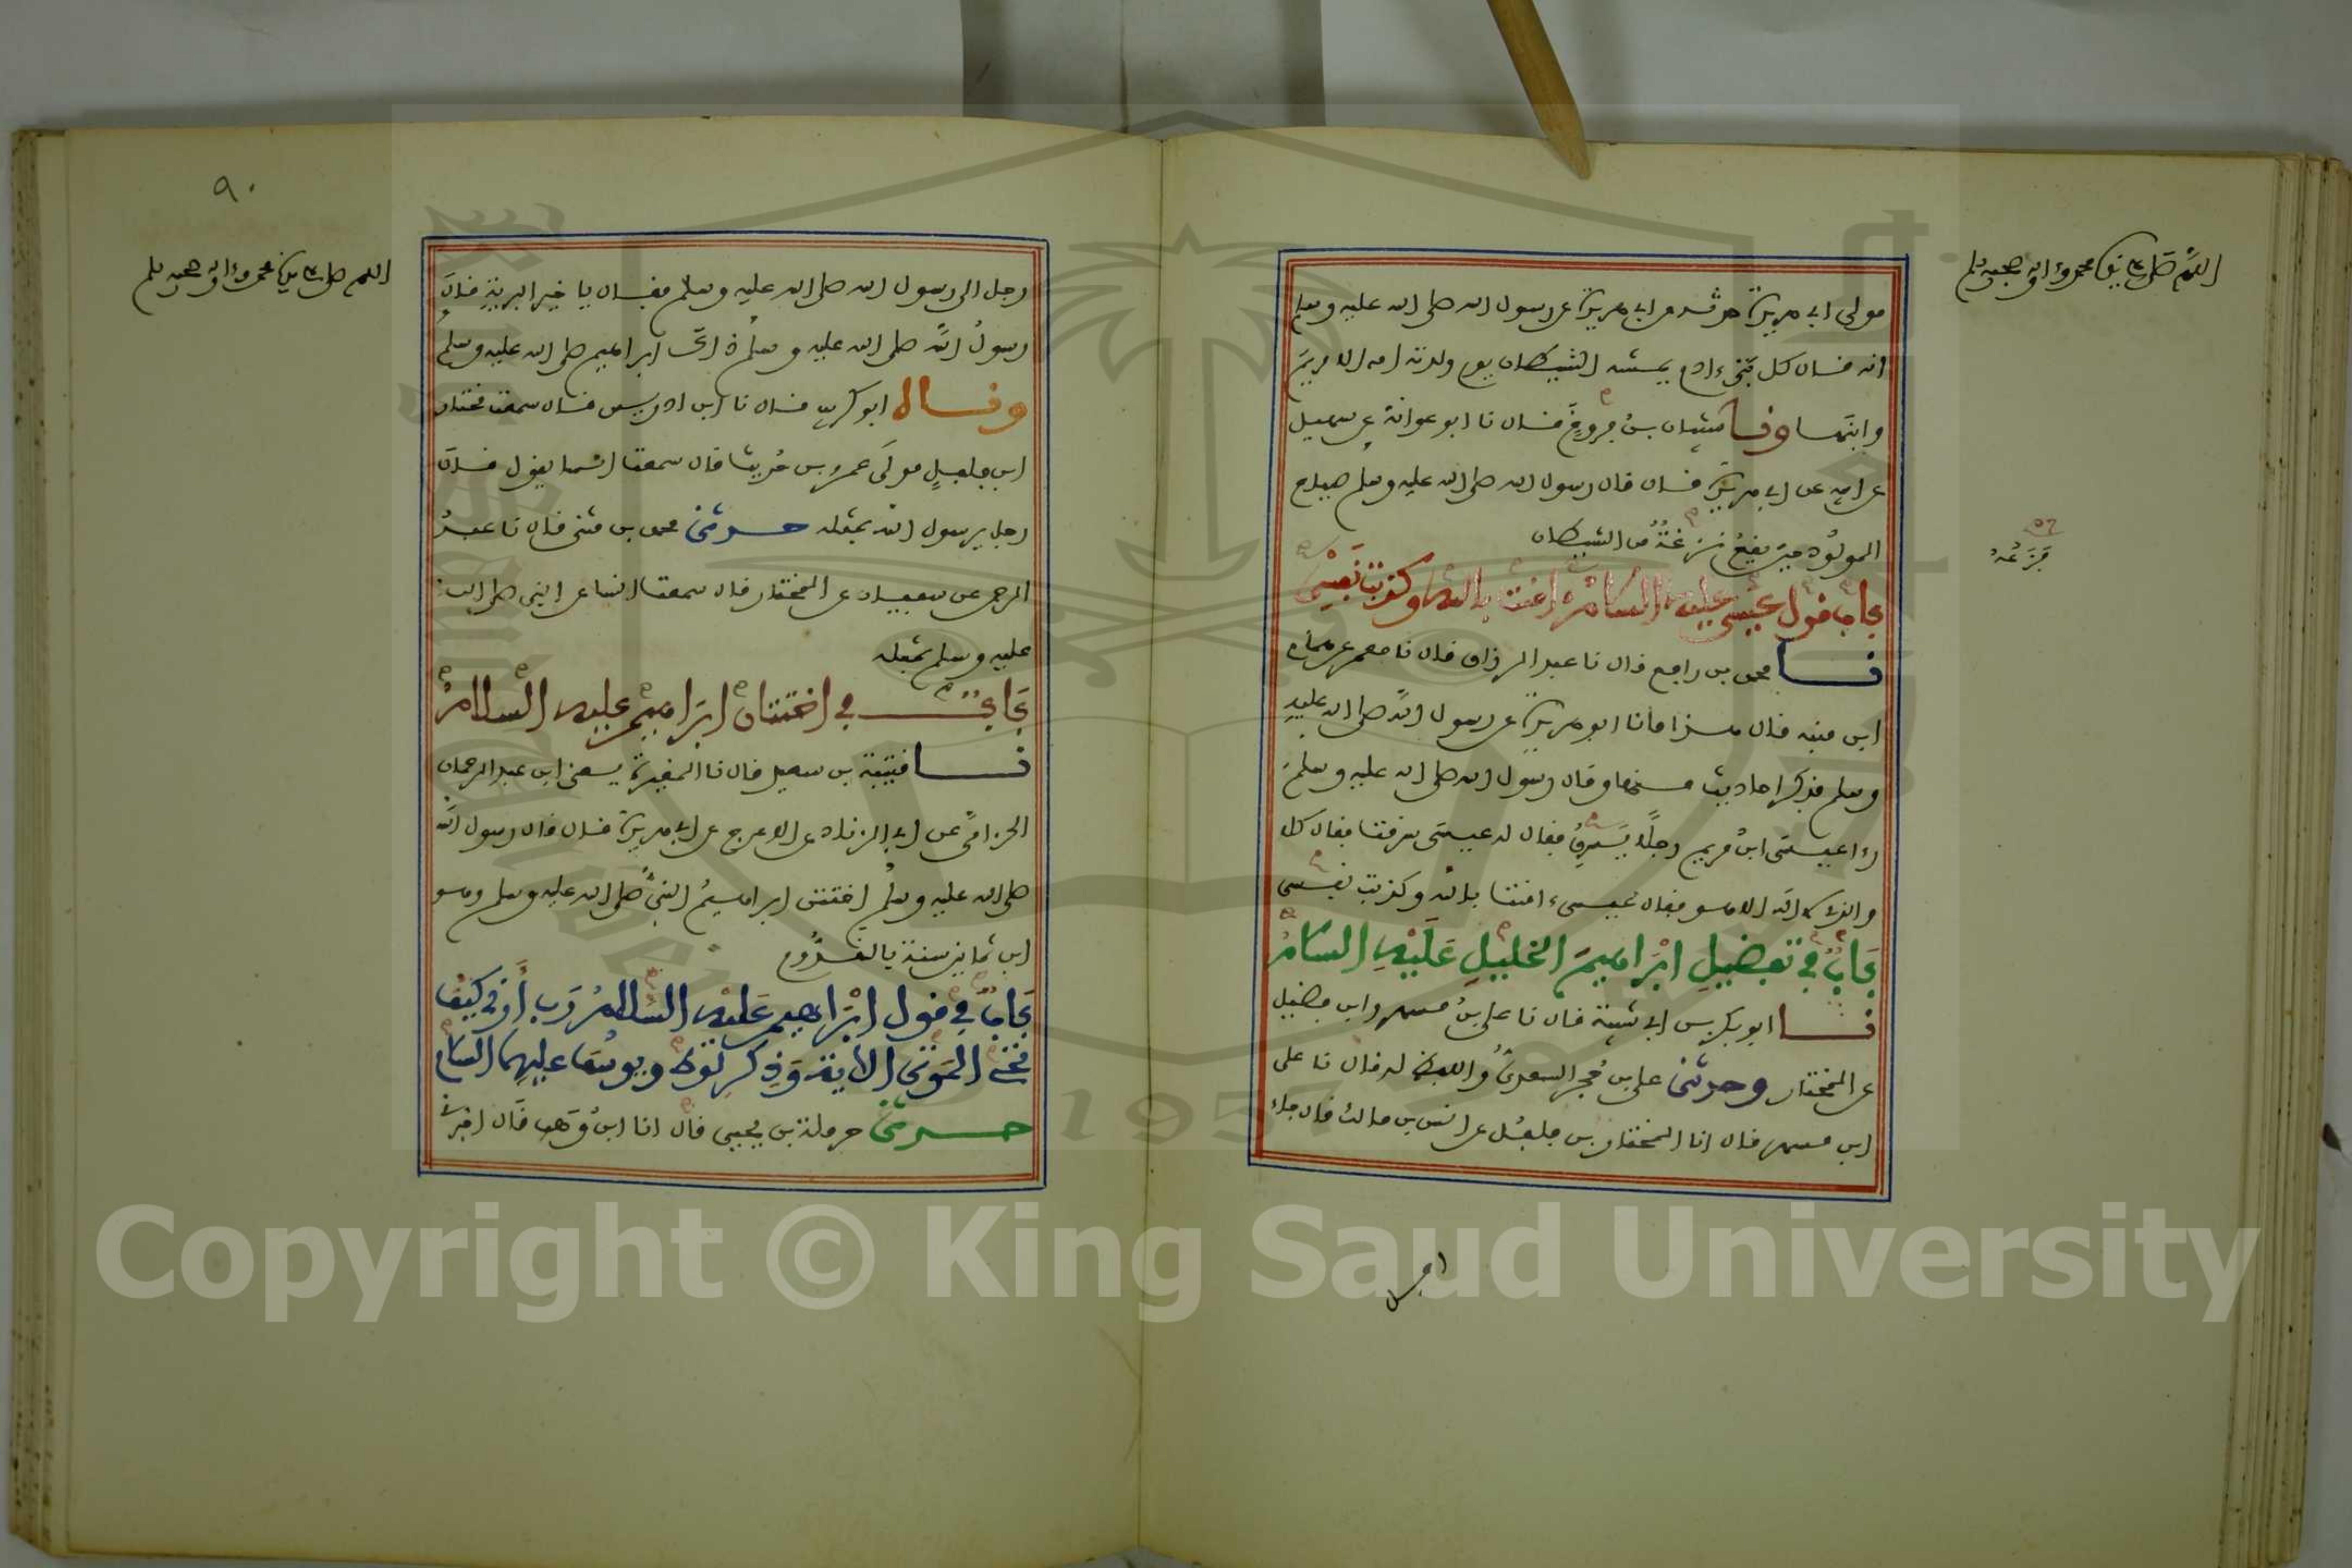 اللهم صل على سيدنا محمد وءاله وصحبه وسلم
مولى ابي هريرة حدثه عن ابي هريرة عن رسول الله صلى الله عليه وسلم
انه قال كل بني ءادم يمسه الشيطان يوم ولدته امه الا مريم
وابنها ونا شيبان بن فروخ قال نا ابو عوانة عن سهيل
عن ابيه عن ابي هريرة قال قال رسول الله صلى الله عليه وسلم صياح
المولود حين يقع نزغة من الشيطان
باب قول عيسى عليه السلام ءامنت بالله وكذبت نفسي
نا محمد بن رافع قال نا عبد الرزاق قال نا معمر عن همام
ابن منبه قال هذا ما نا ابو هريرة عن رسول الله صلى الله عليه
وسلم فذكر احاديث منها وقال رسول الله صلى الله عليه وسلم
رءا عيسى ابن مريم رجلا يسرق فقال له عيسى سرقت فقال كلا
والذي لا اله الا هو فقال عيسى ءامنت بالله وكذبت نفسي
باب في تفضيل ابراهيم الخليل عليه السلام
نا ابو بكر بن ابي شيبة قال نا علي بن مسهر وابن فضيل
عن المختار وحدثني علي بن حجر السعدي واللفظ له قال نا علي
ابن مسهر قال انا المختار بن فلفل عن انس بن مالك قال جاء
فزعه
٩٠
اللهم صل على سيدنا محمد وءاله وصحبه وسلم
رجل الى رسول الله صلى الله عليه وسلم فقال يا خير البرية فقال
رسول الله صلى الله عليه وسلم ذاك ابراهيم صلى الله عليه وسلم
وقال ابو كريب قال نا ابن ادريس قال سمعت مختار
ابن فلفل مولى عمرو بن حريث قال سمعت انسا يقول قال
رجل يرسول الله بمثله حدثني محمد بن مثنى قال نا عبد
الرحمن عن سفيان عن المختار قال سمعت انسا عن النبي صلى الله
عليه وسلم بمثله
باب في اختتان ابراهيم عليه السلام
نا قتيبة بن سعيد قال نا المغيرة يعني ابن عبد الرحمان
الحزامي عن ابي الزناد عن الاعرج عن ابي هريرة قال قال رسول الله
صلى الله عليه وسلم اختتن ابراهيم النبي صلى الله عليه وسلم وهو
ابن ثمانين سنة بالقدوم
باب في قول ابراهيم عليه السلام رب أرني كيف
تحي الموتى الاية وذكر لوط ويوسف عليهما السلام
حدثني حرملة بن يحيى قال انا ابن وهب قال اخبرني
Copyright © King Saud University
1957